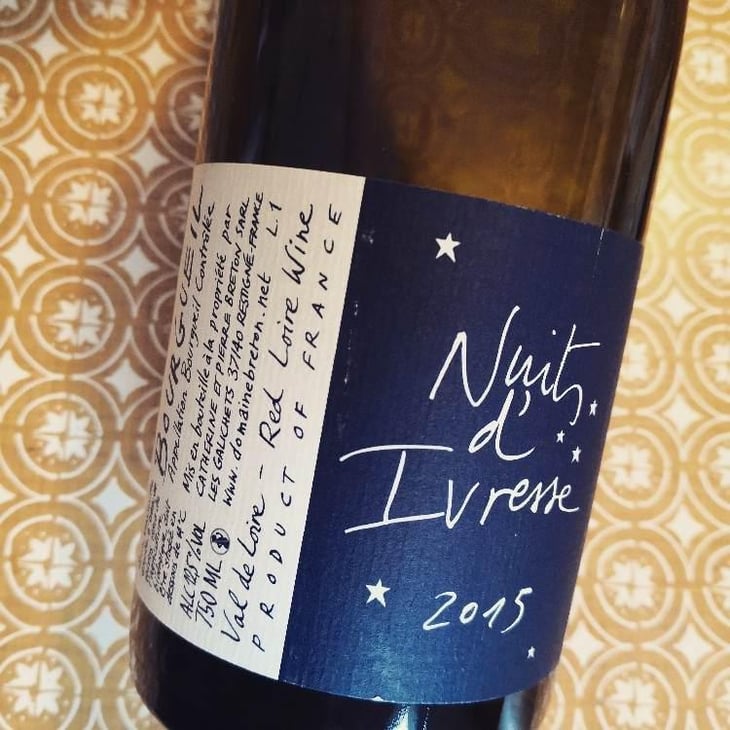 Nuits
d'
Ivresse
2015
BOURGUEIL
Appellation Bourgueil Contrôlée
Mis en bouteille à la propriété par
CATHERINE ET PIERRE BRETON SARL
LES GALICHETS 37140 RESTIGNÉ-FRANCE
www.domainebreton.net L.1
ALC 12,5% VOL
750 ML
Val de Loire - Red Loire Wine
PRODUCT OF FRANCE